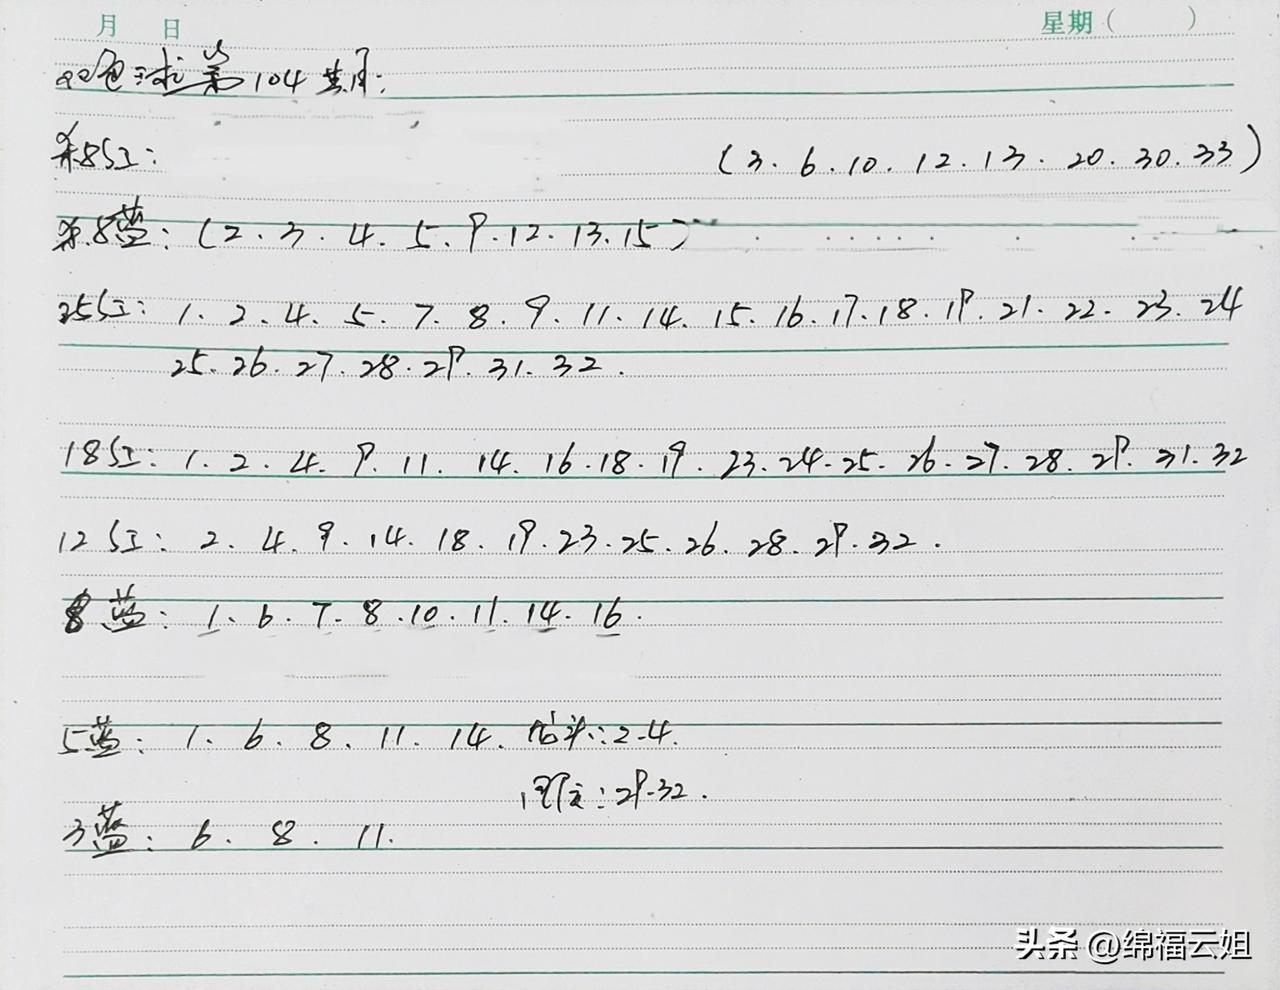 月 日 星期( )
双色球第104期:
杀8红: (3.6.10.12.13.20.30.33)
杀8蓝: (2.3.4.5.9.12.13.15)
25红: 1.2.4.5.7.8.9.11.14.15.16.17.18.19.21.22.23.24
25.26.27.28.29.31.32.
18红: 1.2.4.9.11.14.16.18.19.23.24.25.26.27.28.29.31.32
12红: 2.4.9.14.18.19.23.25.26.28.29.32.
8蓝: 1.6.7.8.10.11.14.16.
5蓝: 1.6.8.11.14. :2-4.
:29-32.
3蓝: 6.8.11.
头条 @绵福云姐